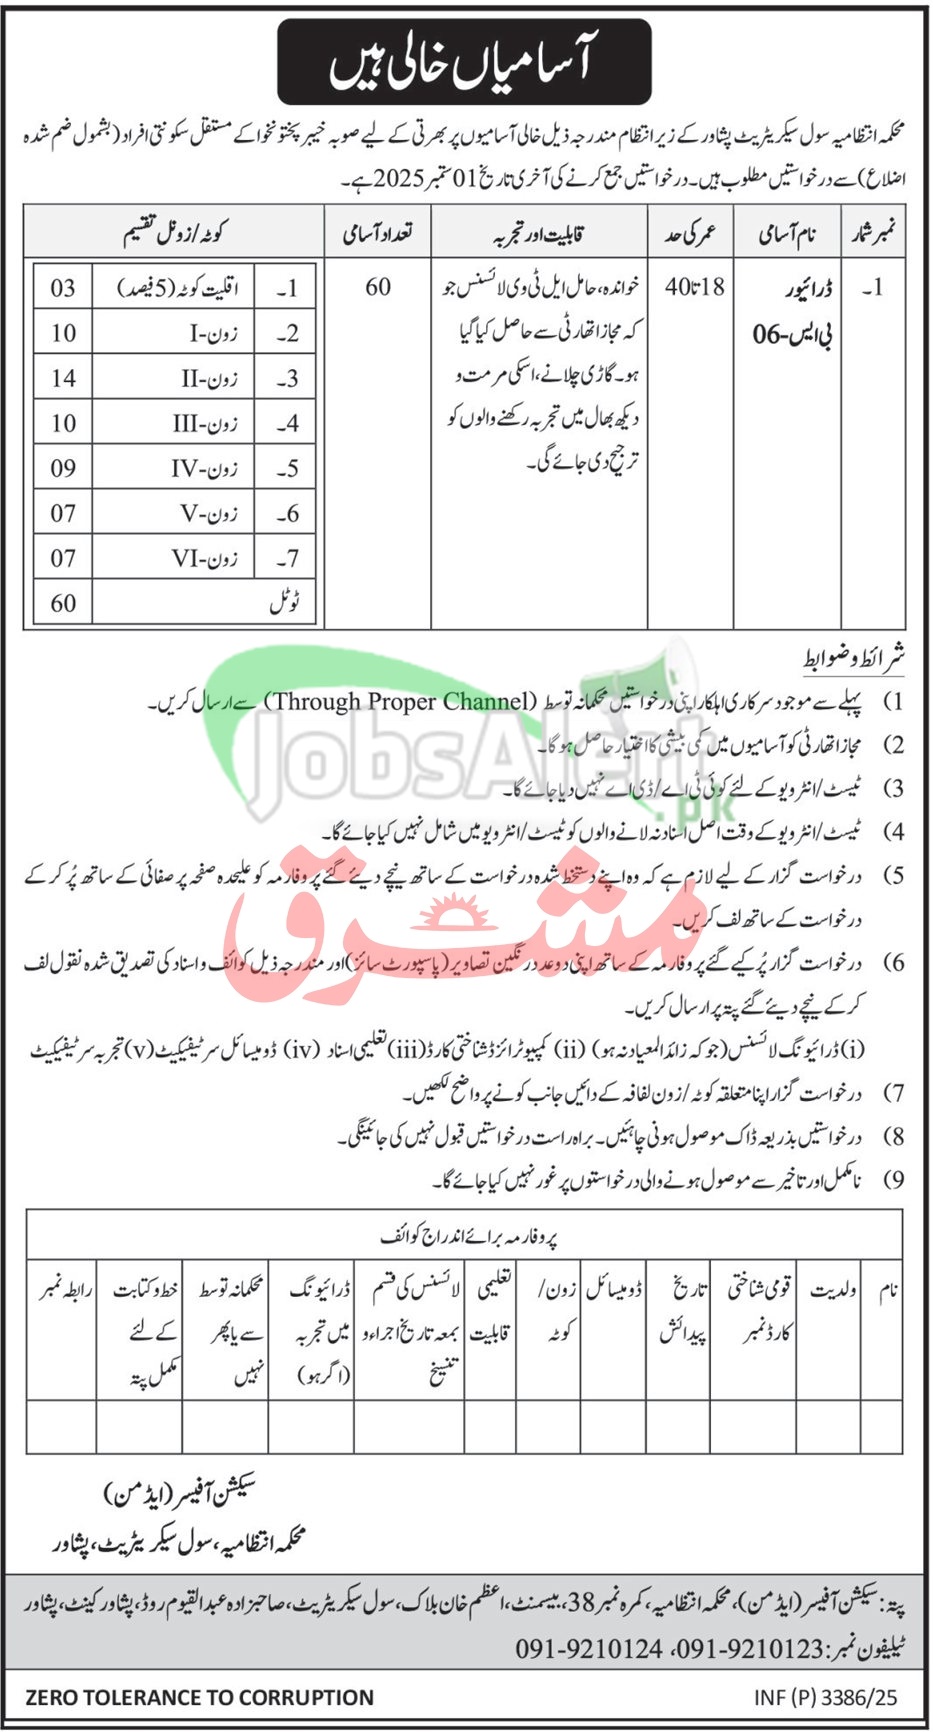 آسامیاں خالی ہیں
محکمہ انتظامیہ سول سیکریٹریٹ پشاور کے زیر انتظام مندرجہ ذیل خالی آسامیوں پر بھرتی کے لیے صوبہ خیبر پختونخوا کے مستقل سکونتی افراد (بشمول ضم شدہ
اضلاع) سے درخواستیں مطلوب ہیں۔ درخواستیں جمع کرنے کی آخری تاریخ 01 ستمبر 2025 ہے۔
نمبر شمار نام آسامی عمر کی حد قابلیت اور تجربہ تعداد آسامی کوٹہ/زونل تقسیم
1۔ ڈرائیور بی ایس-06
18 تا 40
خواندہ، حامل ایل ٹی وی لائسنس جو
کہ مجاز اتھارٹی سے حاصل کیا گیا
ہو۔ گاڑی چلانے، اسکی مرمت و
دیکھ بھال میں تجربہ رکھنے والوں کو
ترجیح دی جائے گی۔
60
1۔ اقلیت کوٹہ (5 فیصد) 03
2۔ زون-I 10
3۔ زون-II 14
4۔ زون-III 10
5۔ زون-IV 09
6۔ زون-V 07
7۔ زون-VI 07
ٹوٹل 60
شرائط و ضوابط
1) پہلے سے موجود سرکاری اہلکار اپنی درخواستیں محکمانہ توسط (Through Proper Channel) سے ارسال کریں۔
2) مجاز اتھارٹی کو آسامیوں میں کمی بیشی کا اختیار حاصل ہوگا۔
JobsAlert.pk
3) ٹیسٹ/انٹرویو کے لئے کوئی ٹی اے/ڈی اے نہیں دیا جائے گا۔
4) ٹیسٹ/انٹرویو کے وقت اصل اسناد نہ لانے والوں کو ٹیسٹ/انٹرویو میں شامل نہیں کیا جائے گا۔
مشرق
5) درخواست گزار کے لیے لازم ہے کہ وہ اپنے دستخط شدہ درخواست کے ساتھ نیچے دیئے گئے پروفارمہ کو علیحدہ صفحہ پر صفائی کے ساتھ پُر کر کے
درخواست کے ساتھ لف کریں۔
6) درخواست گزار پُر کیے گئے پروفارمہ کے ساتھ اپنی دو عدد رنگین تصاویر (پاسپورٹ سائز) اور مندرجہ ذیل کوائف و اسناد کی تصدیق شدہ نقول لف
کر کے نیچے دیئے گئے پتہ پر ارسال کریں۔
(i) ڈرائیونگ لائسنس (جو کہ زائد المعیاد نہ ہو) (ii) کمپیوٹرائزڈ شناختی کارڈ (iii) تعلیمی اسناد (iv) ڈومیسائل سرٹیفیکیٹ (v) تجربہ سرٹیفیکیٹ
7) درخواست گزار اپنا متعلقہ کوٹہ/زون لفافہ کے دائیں جانب کونے پر واضح لکھیں۔
8) درخواستیں بذریعہ ڈاک موصول ہونی چاہئیں۔ براہ راست درخواستیں قبول نہیں کی جائینگی۔
9) نامکمل اور تاخیر سے موصول ہونے والی درخواستوں پر غور نہیں کیا جائے گا۔
پروفارمہ برائے اندراج کوائف
نام
ولدیت
قومی شناختی کارڈ نمبر
تاریخ پیدائش
ڈومیسائل
زون/ کوٹہ
تعلیمی قابلیت
لائسنس کی قسم بمعہ تاریخ اجراء و تنسیخ
ڈرائیونگ میں تجربہ (اگر ہو)
محکمانہ توسط سے یا پھر نہیں
خط و کتابت کے لئے مکمل پتہ
رابطہ نمبر
سیکشن آفیسر (ایڈمن)
محکمہ انتظامیہ، سول سیکریٹریٹ، پشاور
پتہ: سیکشن آفیسر (ایڈمن)، محکمہ انتظامیہ، کمرہ نمبر 38، بیسمنٹ، اعظم خان بلاک، سول سیکریٹریٹ، صاحبزادہ عبدالقیوم روڈ، پشاور کینٹ، پشاور
ٹیلیفون نمبر: 091-9210123، 091-9210124
ZERO TOLERANCE TO CORRUPTION
INF (P) 3386/25